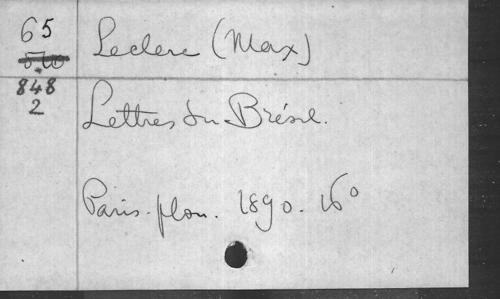 65
Leclerc (Max)
848
2
Lettres du Brésil.
Paris. plon. 1890. 16°